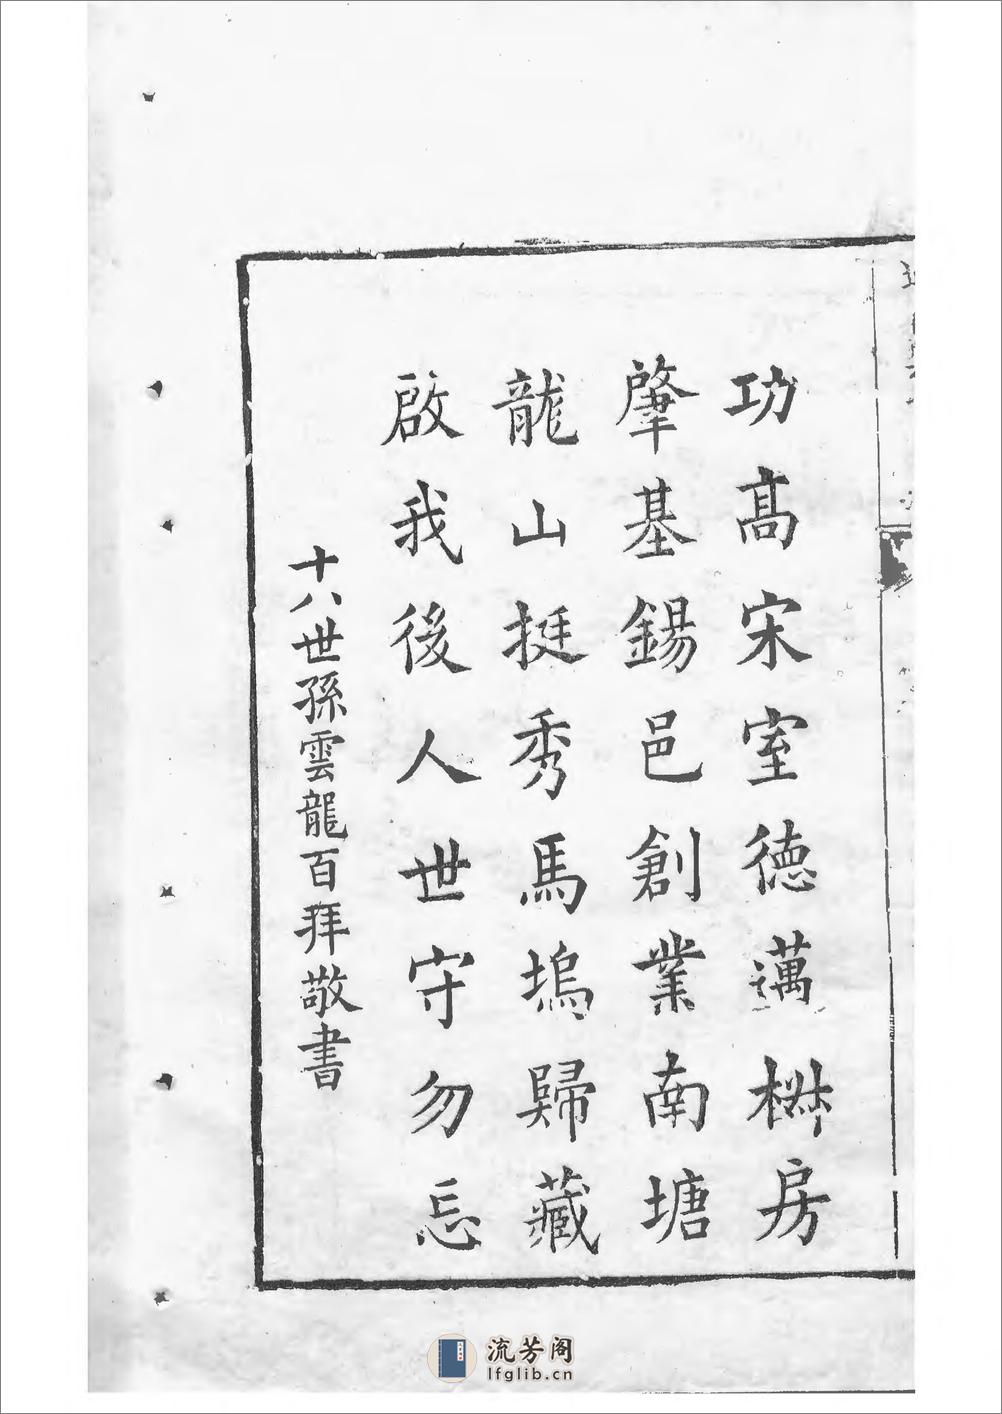 功高宋室德邁椒房
肇基錫邑創業南塘
龍山挺秀馬塢歸藏
啟我後人世守勿忘
十八世孫雲龍百拜敬書
流芳阁
lfglib.cn